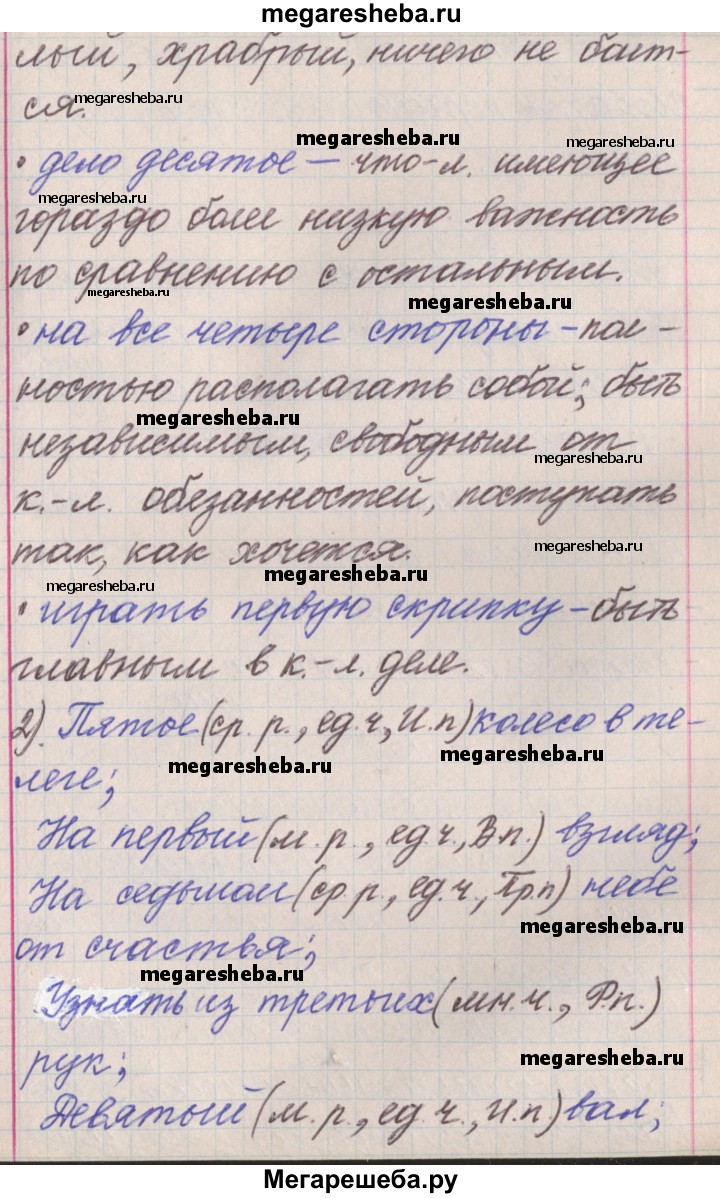 megaresheba.ru
лый, храбрый, ничего не боит-
ся.
megaresheba.ru
megaresheba.ru
megaresheba.ru
• дело десятое – что-л. имеющее
megaresheba.ru
гораздо более низкую важность
по сравнению с остальным.
megaresheba.ru
megaresheba.ru
• на все четыре стороны – пол-
ностью располагать собой; быть
megaresheba.ru
независимым, свободным от
megaresheba.ru
к.-л. обезанностей, поступать
так, как хочется.
megaresheba.ru
megaresheba.ru
megaresheba.ru
• играть первую скрипку – быть
главным в к.-л. деле.
2). Пятое (ср. р., ед.ч., И.п) колесо в те-
megaresheba.ru
megaresheba.ru
леге;
На первый (м. р., ед.ч., В.п.) взгляд;
На седьмом (ср.р., ед.ч., Пр.п) небе
megaresheba.ru
от счастья;
megaresheba.ru
Узнать из третьих (мн.ч., Р.п.)
рук;
megaresheba.ru
Девятый (м.р., ед.ч., И.п) вал;
megaresheba.ru
Мегарешеба.ру